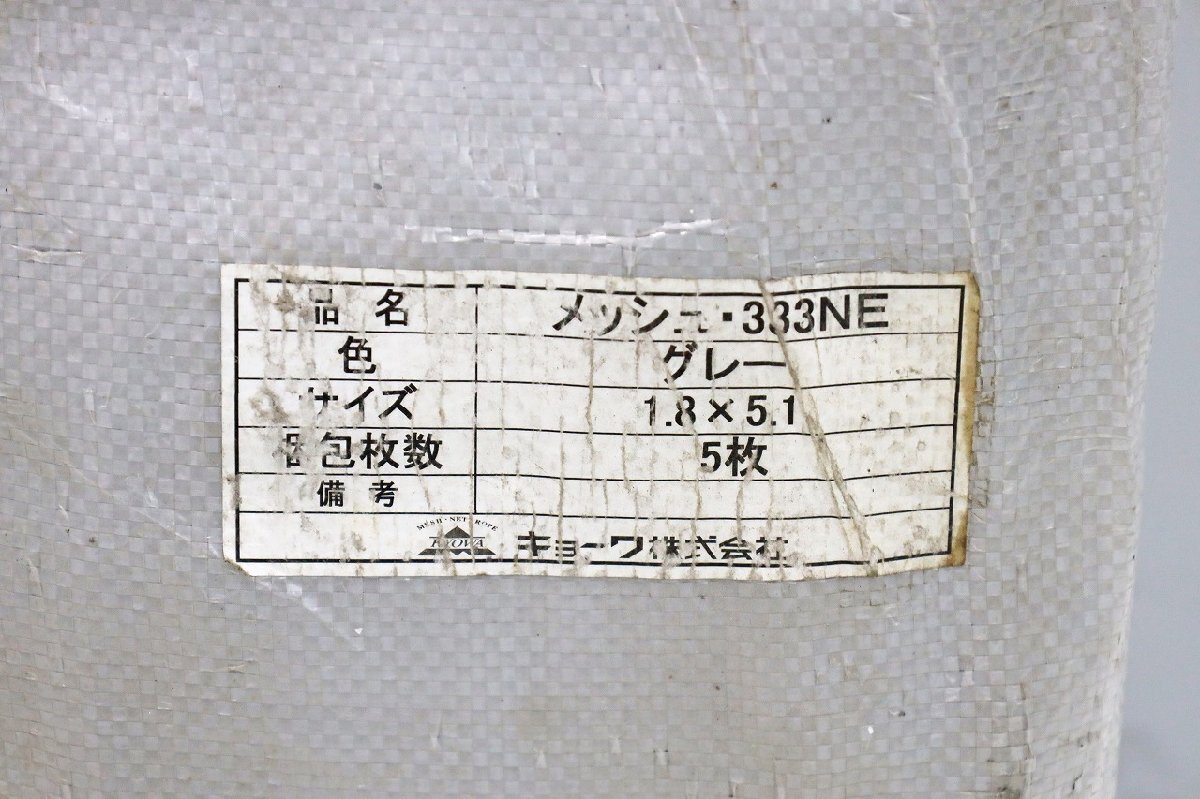 品名 メッシュ・333NE
色 グレー
サイズ 1.8×5.1
梱包枚数 5枚
備考
MESH・NET・ROPE
KYOWA キョーワ株式会社